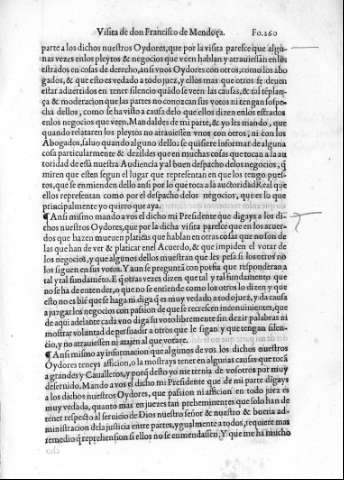 Visita de don Francisco de Mendoça. Fo.260
parte a los dichos nuestros Oydores, que por la visita paresce que algu-
nas vezes en los pleytos & negocios que veen hablan y atrauiessan en los
estrados en cosas de derecho, ansi vnos Oydores con otros, como los abo
gados, & que esto es vedado a todo juez, y ellos mas que otros se deuen
estar aduertidos en tener silencio quãdo se veen las causas, & tal templan-
ça & moderacion que las partes no conozcan sus votos ni tengan sospe-
cha dellos, como se ha visto a causa delo que ellos dizen en los estrados
en los negocios que veen. Mandaldes de mi parte, & yo les mando, que
quando relataren los pleytos no atrauiessen vnos con otros, ni con los
Abogados, saluo quando alguno dellos se quisiere informar de alguna
cosa particularmente & dezildes que en muchas cosas que tocan a la au
toridad de essa nuestra Audiencia y al buen despacho delos negocios, q̃
miren que esten segun el lugar que representan en que los tengo pues-
tos, que se enmienden dello ansi por lo que toca a la auctoridad Real que
ellos representan como por el despacho delos negocios, que es lo que
principalmente yo quiero que aya.
¶ Ansi mismo mando a vos el dicho mi Presidente que digays a los di-
chos nuestros Oydores, que por la dicha visita paresce que en los acuer-
dos que hazen mueuen platicas que hablan en otras cosas que no son de
las que han de ver & platicar en el Acuerdo, & que impiden el votar de
los negocios, y que algunos dellos muestran que les pesa si los otros no
los siguen en sus votos. Y aun se pregunta con porfia que respondera a
tal y tal fundamẽto. E q̃ otras vezes dizen que tal y tal fundamento que
no se ha de entender, o que no se entiende como los otros lo dizen y que
esto no es biẽ que se haga ni diga q̃ es muy vedado a todo juez, y da causa
a juzgar los negocios con passion de que se recrescen inconuinientes, que
de aqui adelante cada vno diga su voto libremente sin dezir palabras ni
mostrar voluntad de persuadir a otros que le sigan: y que tengan silen-
cio, y no atrauiessen ni atajen al que votare.
¶ Ansi mismo ay informacion que algunos de vos los dichos nuestros
Oydores teneys afficion, o la mostrays tener en algunas causas que tocã
a grandes y Caualleros, y porq̃ desto yo me ternia de vosotros por muy
deseruido. Mando a vos el dicho mi Presidente que de mi parte digays
a los dichos nuestros Oydores, que passion ni afficion en todo juez es
muy vedada, quanto mas en juezes tan preheminentes que solo han de
tener respecto al seruicio de Dios nuestro señor & nuestro & buena ad-
ministracion dela justicia entre partes, ygualmente a todos, requiere mas
remedio q̃ reprehension si ellos no se enmendassen. Y que me ha mucho